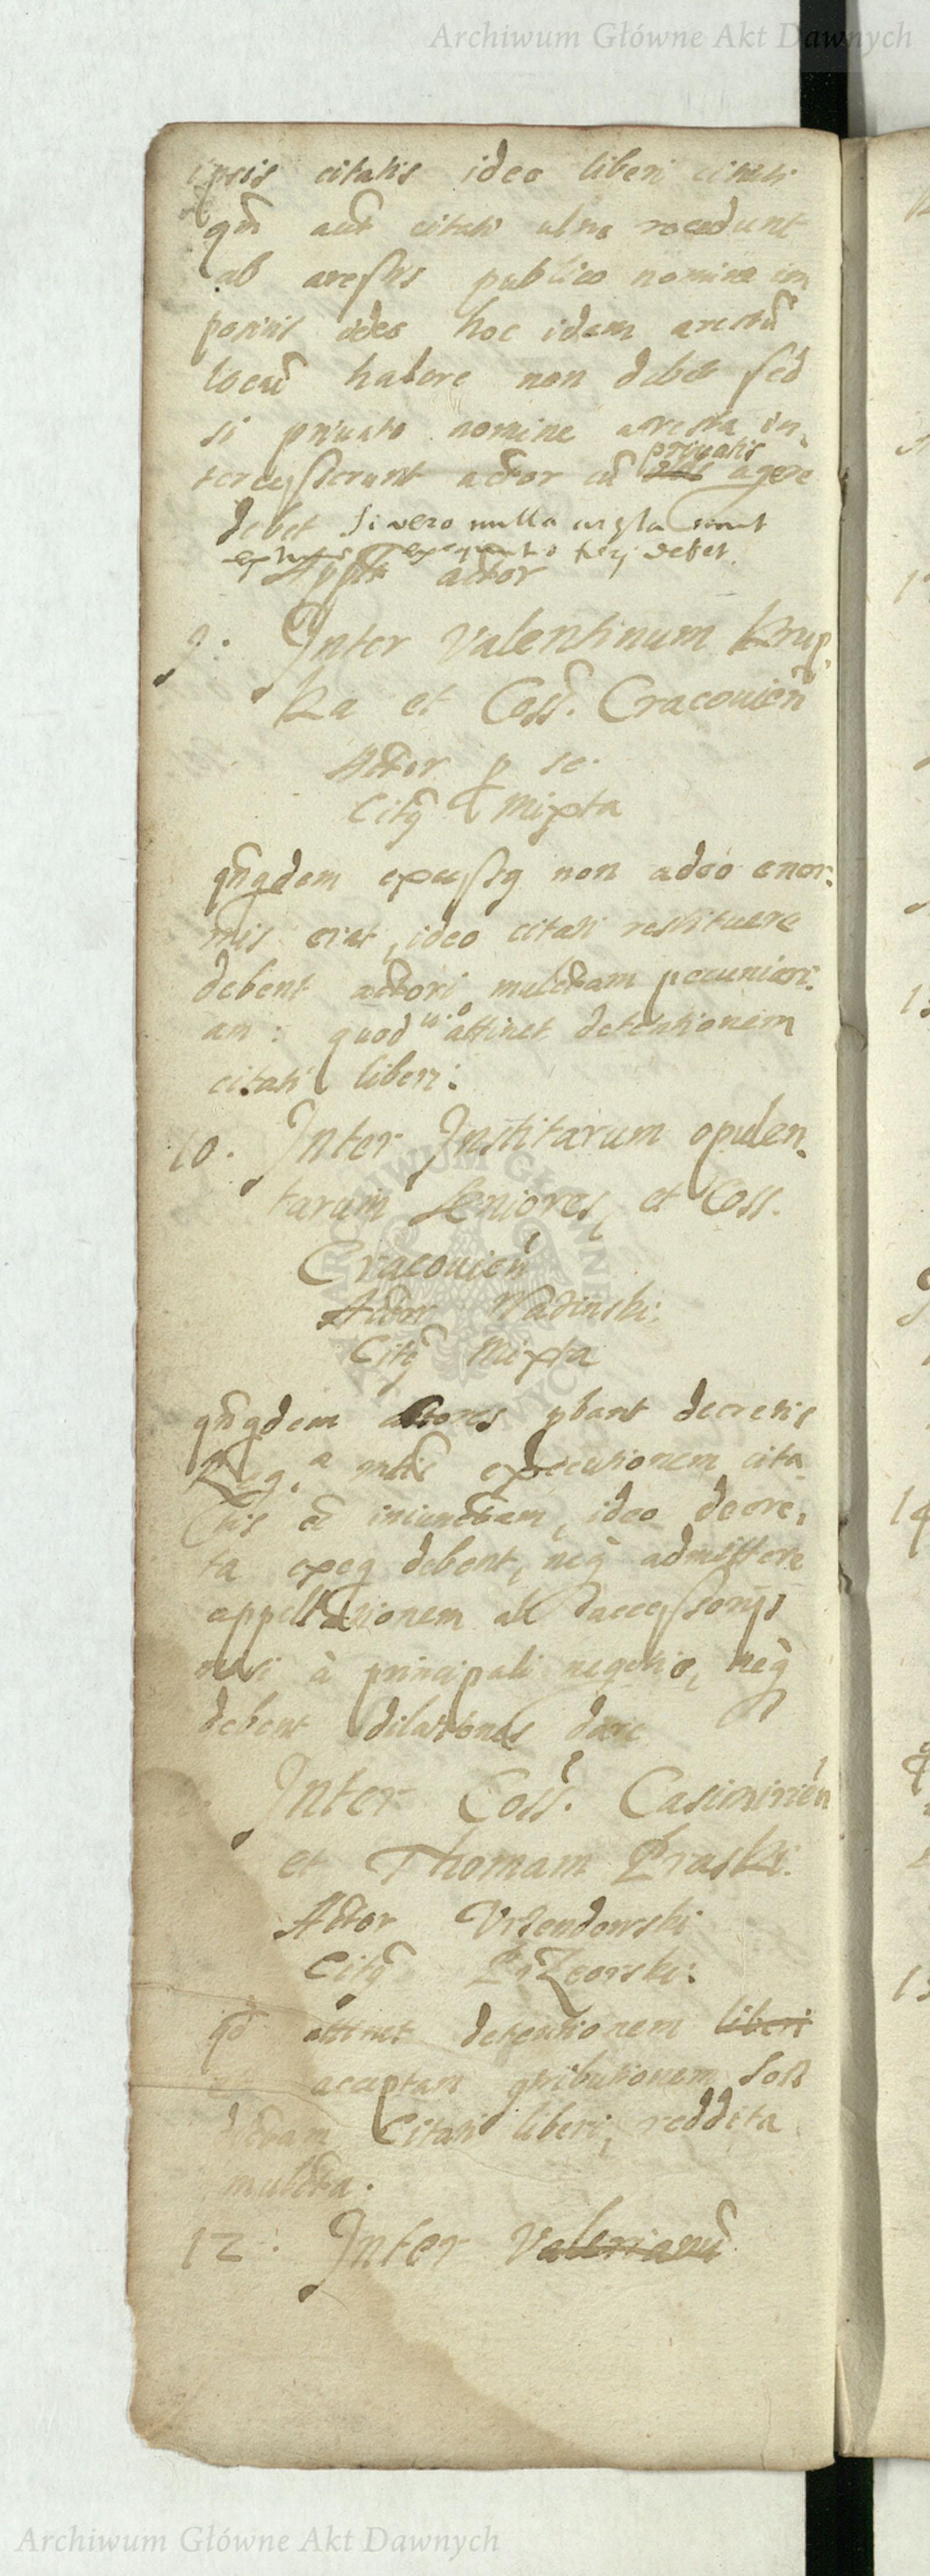 Archiwum Główne Akt Dawnych
ipsis citatis ideo liberi citati
qm̃ aut̃ citati ultro recedunt
ab arestis publico nomine im
positis ideo hoc idem arestũ
locũ habere non debet sed
si priuato nomine aresta in,
tercesserunt actor cũ privatis agere
debet Si vero nulla sunt
debet
Appt actor
9. Inter Valentinum Krup,
ka et Coss. Cracouieñ
Actor p se.
Citq̃ Mixta
qñqdem excessq non adeo enor:
mis erat, ideo citati restituere
debent actori mulctam pecuniari:
am: quod u.o attinet detentionem
citati liberi:
10. Inter Institarum opulen,
tarum Seniores, et Coss.
Cracouień
Actor Wadinski:
Citq̃ Mixta
qñqdem actores pbant decretis
Reg.a mtis executionem cita
tis ẽe iniunctam, ideo decre,
ta exeq debent, neq̃ admittere
appellationem ab accessorijs
nisi à principali negotio, neq̃
debent dilationes dare
Inter Coss. Casimirień
et Thomam Praski.
Actor Vrzendowski
Citq̃
qd attinet detentionem liberi
acceptam Soli
Citati liberi, reddita
mulcta.
12. Inter Valerianũ
Archiwum Główne Akt Dawnych